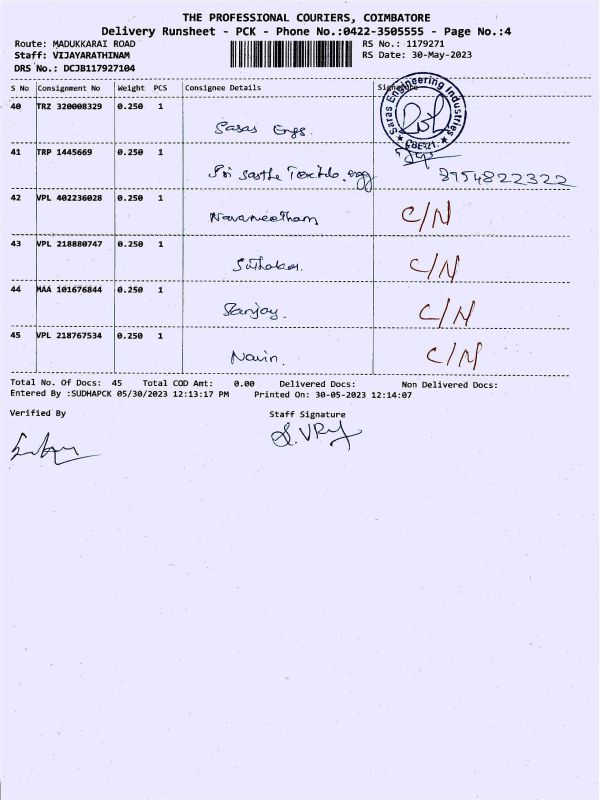 THE PROFESSIONAL COURIERS, COIMBATORE
Delivery Runsheet - PCK - Phone No.:0422-3505555 - Page No.:4
Route: MADUKKARAI ROAD RS No.: 1179271
Staff: VIJAYARATHINAM RS Date: 30-May-2023
DRS No.: DCJB117927104
S No Consignment No Weight PCS Consignee Details Signature
40 TRZ 320008329 0.250 1 Saras Engg. Saras Engineering Industries CBE-21.
41 TRP 1445669 0.250 1 Sri Sastha Textile. engg 8954822322
42 VPL 402236028 0.250 1 Navaneetham C/N
43 VPL 218880747 0.250 1 Suthakar. C/N
44 MAA 101676844 0.250 1 Sanjay. C/N
45 VPL 218767534 0.250 1 Navin. C/N
Total No. Of Docs: 45 Total COD Amt: 0.00 Delivered Docs: Non Delivered Docs:
Entered By :SUDHAPCK 05/30/2023 12:13:17 PM Printed On: 30-05-2023 12:14:07
Verified By Staff Signature